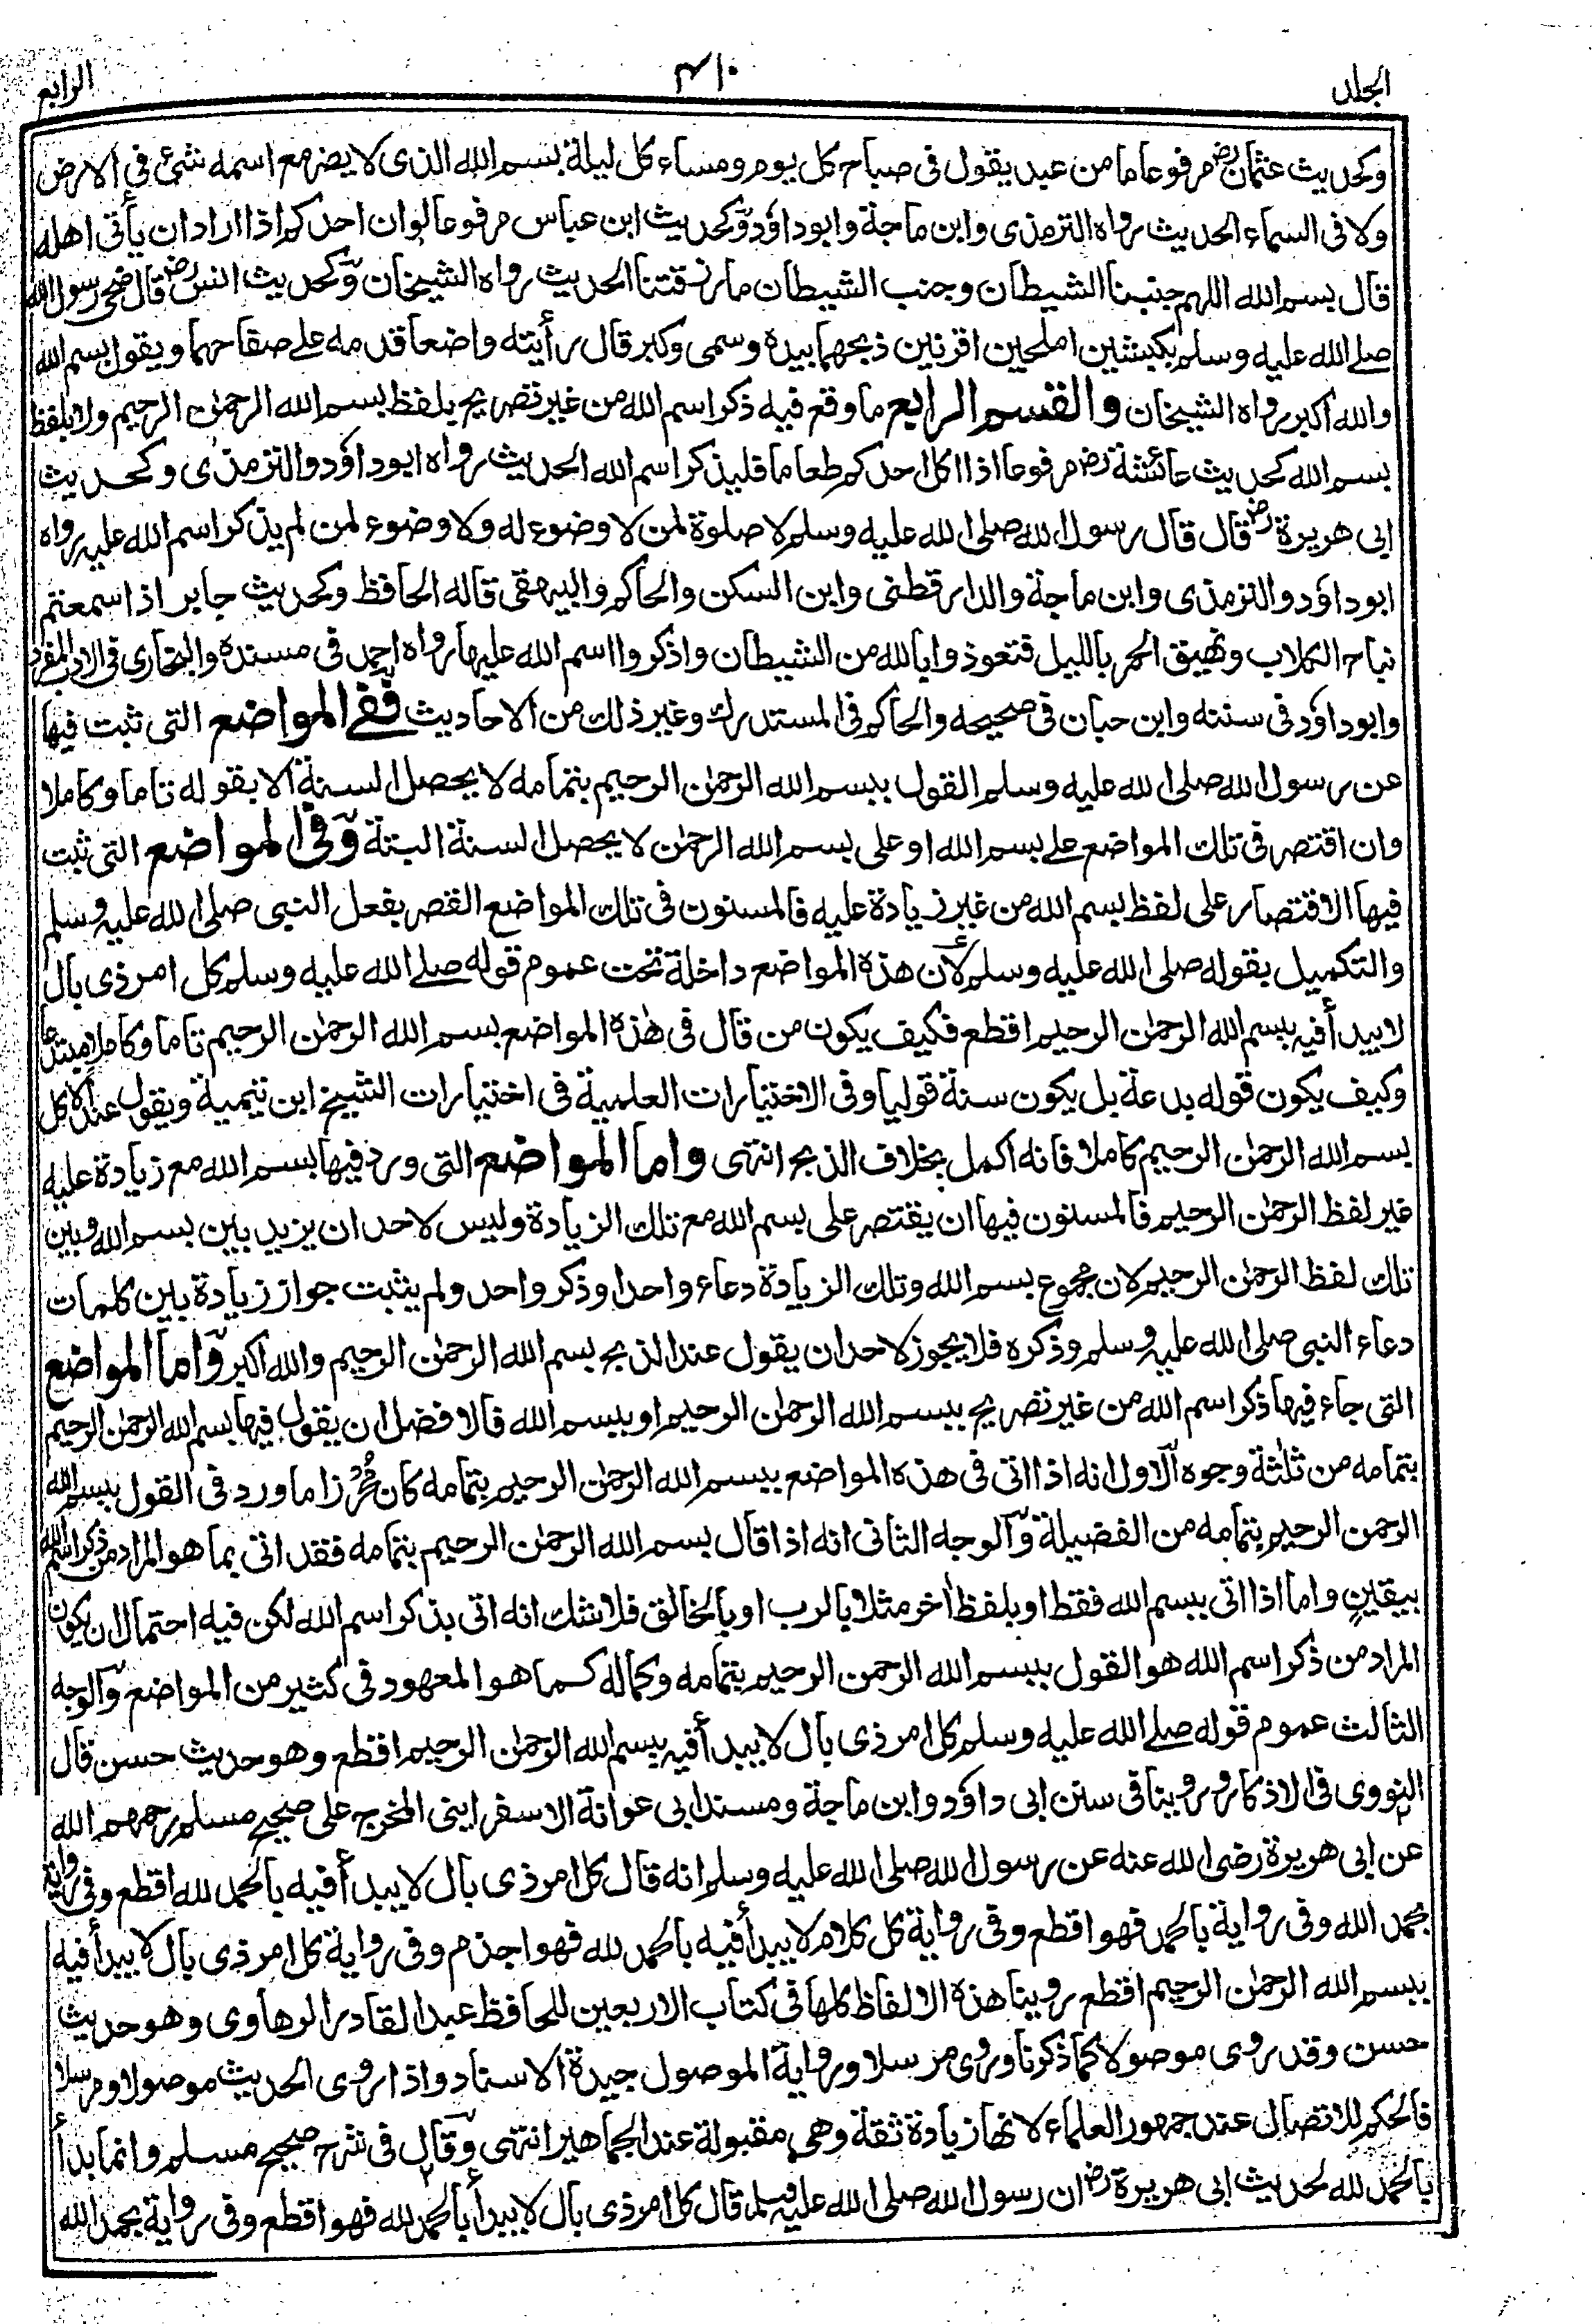 الجلد
٤١٠
الرابع
وكحديث عثمان رض مرفوعا ما من عبد يقول فى صباح كل يوم ومساء كل ليلة بسم الله الذى لا يضر مع اسمه شئ فى الارض
ولا فى السماء الحديث رواه الترمذى وابن ماجة وابو داؤد وكحديث ابن عباس مرفوعا لو ان احدكم اذا اراد ان يأتى اهله
قال بسم الله اللهم جنبنا الشيطان وجنب الشيطان ما رزقتنا الحديث رواه الشيخان وكحديث انس رض قال ضحى رسول الله
صلى الله عليه وسلم بكبشين املحين اقرنين ذبحهما بيده وسمى وكبر قال رأيته واضعا قدمه على صفاحهما ويقول بسم الله
والله اكبر رواه الشيخان والقسم الرابع ما وقع فيه ذكر اسم الله من غير تصريح بلفظ بسم الله الرحمٰن الرحيم ولا بلفظ
بسم الله كحديث عائشة رض مرفوعا اذا اكل احدكم طعاما فليذكر اسم الله الحديث رواه ابو داؤد والترمذى وكحديث
ابى هريرة رض قال قال رسول الله صلى الله عليه وسلم لا صلوة لمن لا وضوء له ولا وضوء لمن لم يذكر اسم الله عليه رواه
ابو داؤد والترمذى وابن ماجة والدارقطنى وابن السكن والحاكم والبيهقى قاله الحافظ وكحديث جابر اذا سمعتم
نباح الكلاب ونهيق الحمر بالليل فتعوذوا بالله من الشيطان واذكروا اسم الله عليها رواه احمد فى مسنده والبخارى فى الادب المفرد
وابو داؤد فى سننه وابن حبان فى صحيحه والحاكم فى المستدرك وغير ذلك من الاحاديث ففى المواضع التى ثبت فيها
عن رسول الله صلى الله عليه وسلم القول ببسم الله الرحمٰن الرحيم بتمامه لا يحصل السنة الا بقوله تاما وكاملا
وان اقتصر فى تلك المواضع على بسم الله او على بسم الله الرحمٰن لا يحصل السنة البتة وفى المواضع التى ثبت
فيها الاقتصار على لفظ بسم الله من غير زيادة عليه فالمسنون فى تلك المواضع القصر بفعل النبى صلى الله عليه وسلم
والتكميل بقوله صلى الله عليه وسلم لأن هذه المواضع داخلة تحت عموم قوله صلى الله عليه وسلم كل امر ذى بال
لا يبدأ فيه ببسم الله الرحمٰن الرحيم اقطع فكيف يكون من قال فى هٰذه المواضع بسم الله الرحمٰن الرحيم تاما وكاملا مبتدعا
وكيف يكون قوله بدعة بل يكون سنة قوليا وفى الاختيارات العلمية فى اختيارات الشيخ ابن تيمية ويقول عند الاكل
بسم الله الرحمٰن الرحيم كاملا فانه اكمل بخلاف الذبح انتهى واما المواضع التى ورد فيها بسم الله مع زيادة عليه
غير لفظ الرحمٰن الرحيم فالمسنون فيها ان يقتصر على بسم الله مع تلك الزيادة وليس لاحد ان يزيد بين بسم الله وبين
تلك لفظ الرحمٰن الرحيم لان مجموع بسم الله وتلك الزيادة دعاء واحد او ذكر واحد ولم يثبت جواز زيادة بين كلمات
دعاء النبى صلى الله عليه وسلم وذكره فلا يجوز لاحد ان يقول عند الذبح بسم الله الرحمٰن الرحيم والله اكبر واما المواضع
التى جاء فيها ذكر اسم الله من غير تصريح ببسم الله الرحمٰن الرحيم او ببسم الله فالافضل ان يقول فيها بسم الله الرحمٰن الرحيم
بتمامه من ثلٰثة وجوه الاول انه اذا اتى فى هذه المواضع ببسم الله الرحمٰن الرحيم بتمامه كان مُحْرِزا ما ورد فى القول ببسم الله
الرحمن الرحيم بتمامه من الفضيلة والوجه الثانى انه اذا قال بسم الله الرحمٰن الرحيم بتمامه فقد اتى بما هو المراد من ذكر اسم الله
بيقينٍ واما اذا اتى ببسم الله فقط او بلفظ اٰخر مثلا بالرب او بالخالق فلا شك انه اتى بذكر اسم الله لكن فيه احتمال ان يكون
المراد من ذكر اسم الله هو القول ببسم الله الرحمن الرحيم بتمامه وكماله كما هو المعهود فى كثير من المواضع والوجه
الثالث عموم قوله صلى الله عليه وسلم كل امر ذى بال لا يبدأ فيه ببسم الله الرحمٰن الرحيم اقطع وهو حديث حسن قال
النووى فى الاذكار وروينا فى سنن ابى داؤد وابن ماجة ومسند ابى عوانة الاسفراينى المخرج على صحيح مسلم رحمهم الله
عن ابى هريرة رضى الله عنه عن رسول الله صلى الله عليه وسلم انه قال كل امر ذى بال لا يبدأ فيه بالحمد لله اقطع وفى رواية
بحمد الله وفى رواية بالحمد فهو اقطع وفى رواية كل كلام لا يبدأ فيه بالحمد لله فهو اجذم وفى رواية كل امر ذى بال لا يبدأ فيه
ببسم الله الرحمٰن الرحيم اقطع روينا هذه الالفاظ كلها فى كتاب الاربعين للحافظ عبد القادر الرهاوى وهو حديث
حسن وقد روى موصولا كما ذكرنا وروى مرسلا ورواية الموصول جيدة الاسناد واذا روى الحديث موصولا ومرسلا
فالحكم للاتصال عند جمهور العلماء لانها زيادة ثقة وهى مقبولة عند الجماهير انتهى وقال فى شرح صحيح مسلم وانما بدأ
بالحمد لله لحديث ابى هريرة رض ان رسول الله صلى الله عليه وسلم قال كل امر ذى بال لا يبدأ بالحمد لله فهو اقطع وفى رواية بحمد الله